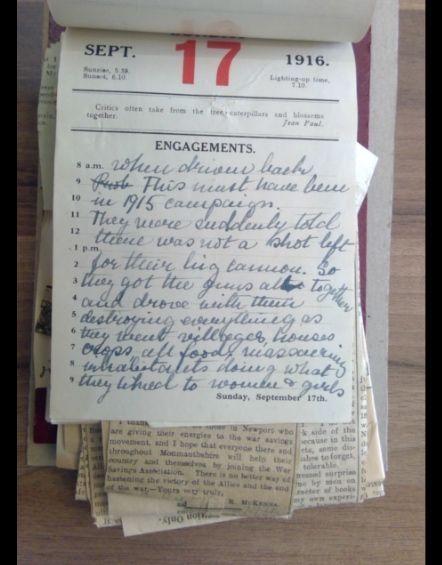 SEPT. 17 1916.
Sunrise, 5.38.
Sunset, 6.10.
Lighting-up time,
7.10.
Critics often take from the tree caterpillars and blossoms
together.
Jean Paul.
ENGAGEMENTS.
8 a.m. when driven back
9 This must have been
10 in 1915 campaign.
11 They were suddenly told
12 there was not a shot left
1 p.m. for their big cannon. So
2 they got the guns all together
3 and drove with them
4 destroying everything as
5 they went villages, houses
6 crops, all food, massacring
7 inhabitants doing what
8 they liked to women & girls
9
Sunday, September 17th.
in Newport who
are giving their energies to the war savings
movement, and I hope that everyone there and
throughout Monmouthshire will help their
country and themselves by joining the War
Savings Association. There is no better way of
hastening the victory of the Allies and the end
of the war.—Yours very truly,
R. McKenna
side of the
because in this
to forget,
tolerable.
surprise
by men on
of books
own
Only.